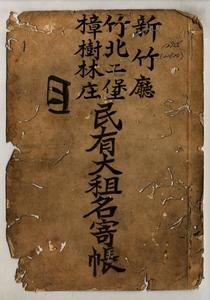 新竹廳
竹北二堡
樟樹林庄
民有大租名寄帳